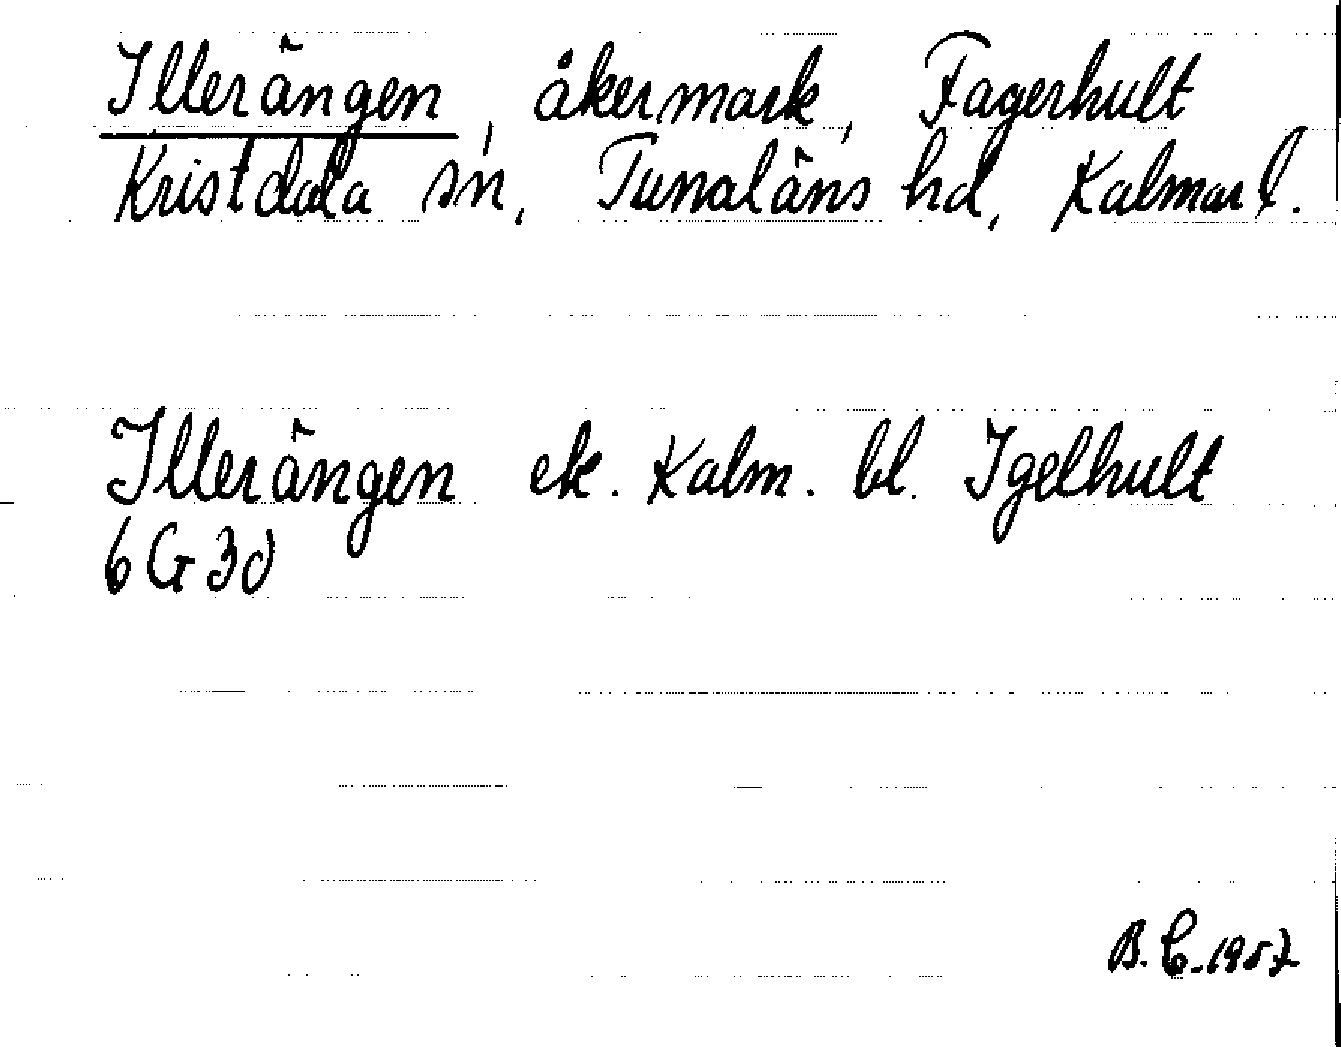 Illerängen, åkermark, Fagerhult
Kristdala sn, Tunaläns hd, Kalmar l.
Illerängen ek. Kalm. bl. Igelhult
6G3d
B. C. 1957